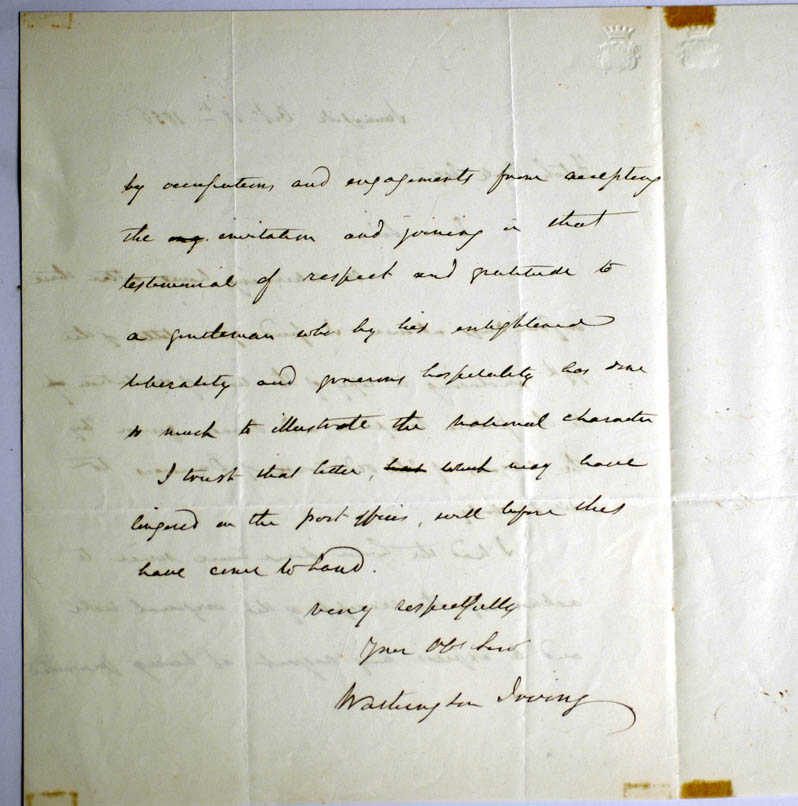 by occupations and engagements from accepting
the my invitation and joining in that
testimonial of respect and gratitude to
a gentleman who by his enlightened
liberality and generous hospitality has done
so much to illustrate the national character
I trust that letter, had which may have
lingered in the post offices, will before this
have come to hand.
very respectfully
Your Obt Serv
Washington Irving